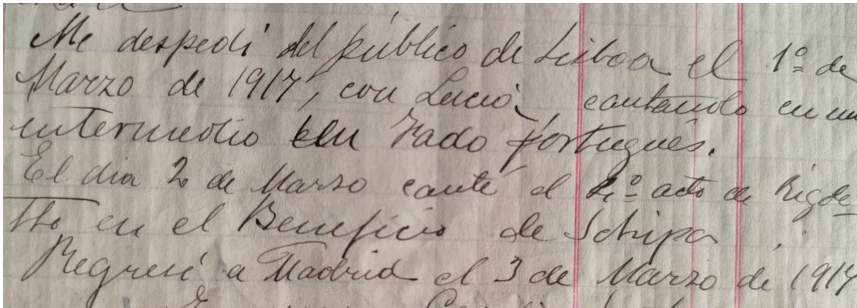 Me despedí del público de Lisboa el 1º de
Marzo de 1917, con Lucia, cantando en un
intermedio un Fado portugués.
El dia 2 de Marzo canté el 2º acto de Rigole-
tto en el Beneficio de Schipa.
Regresé a Madrid el 3 de Marzo de 1917